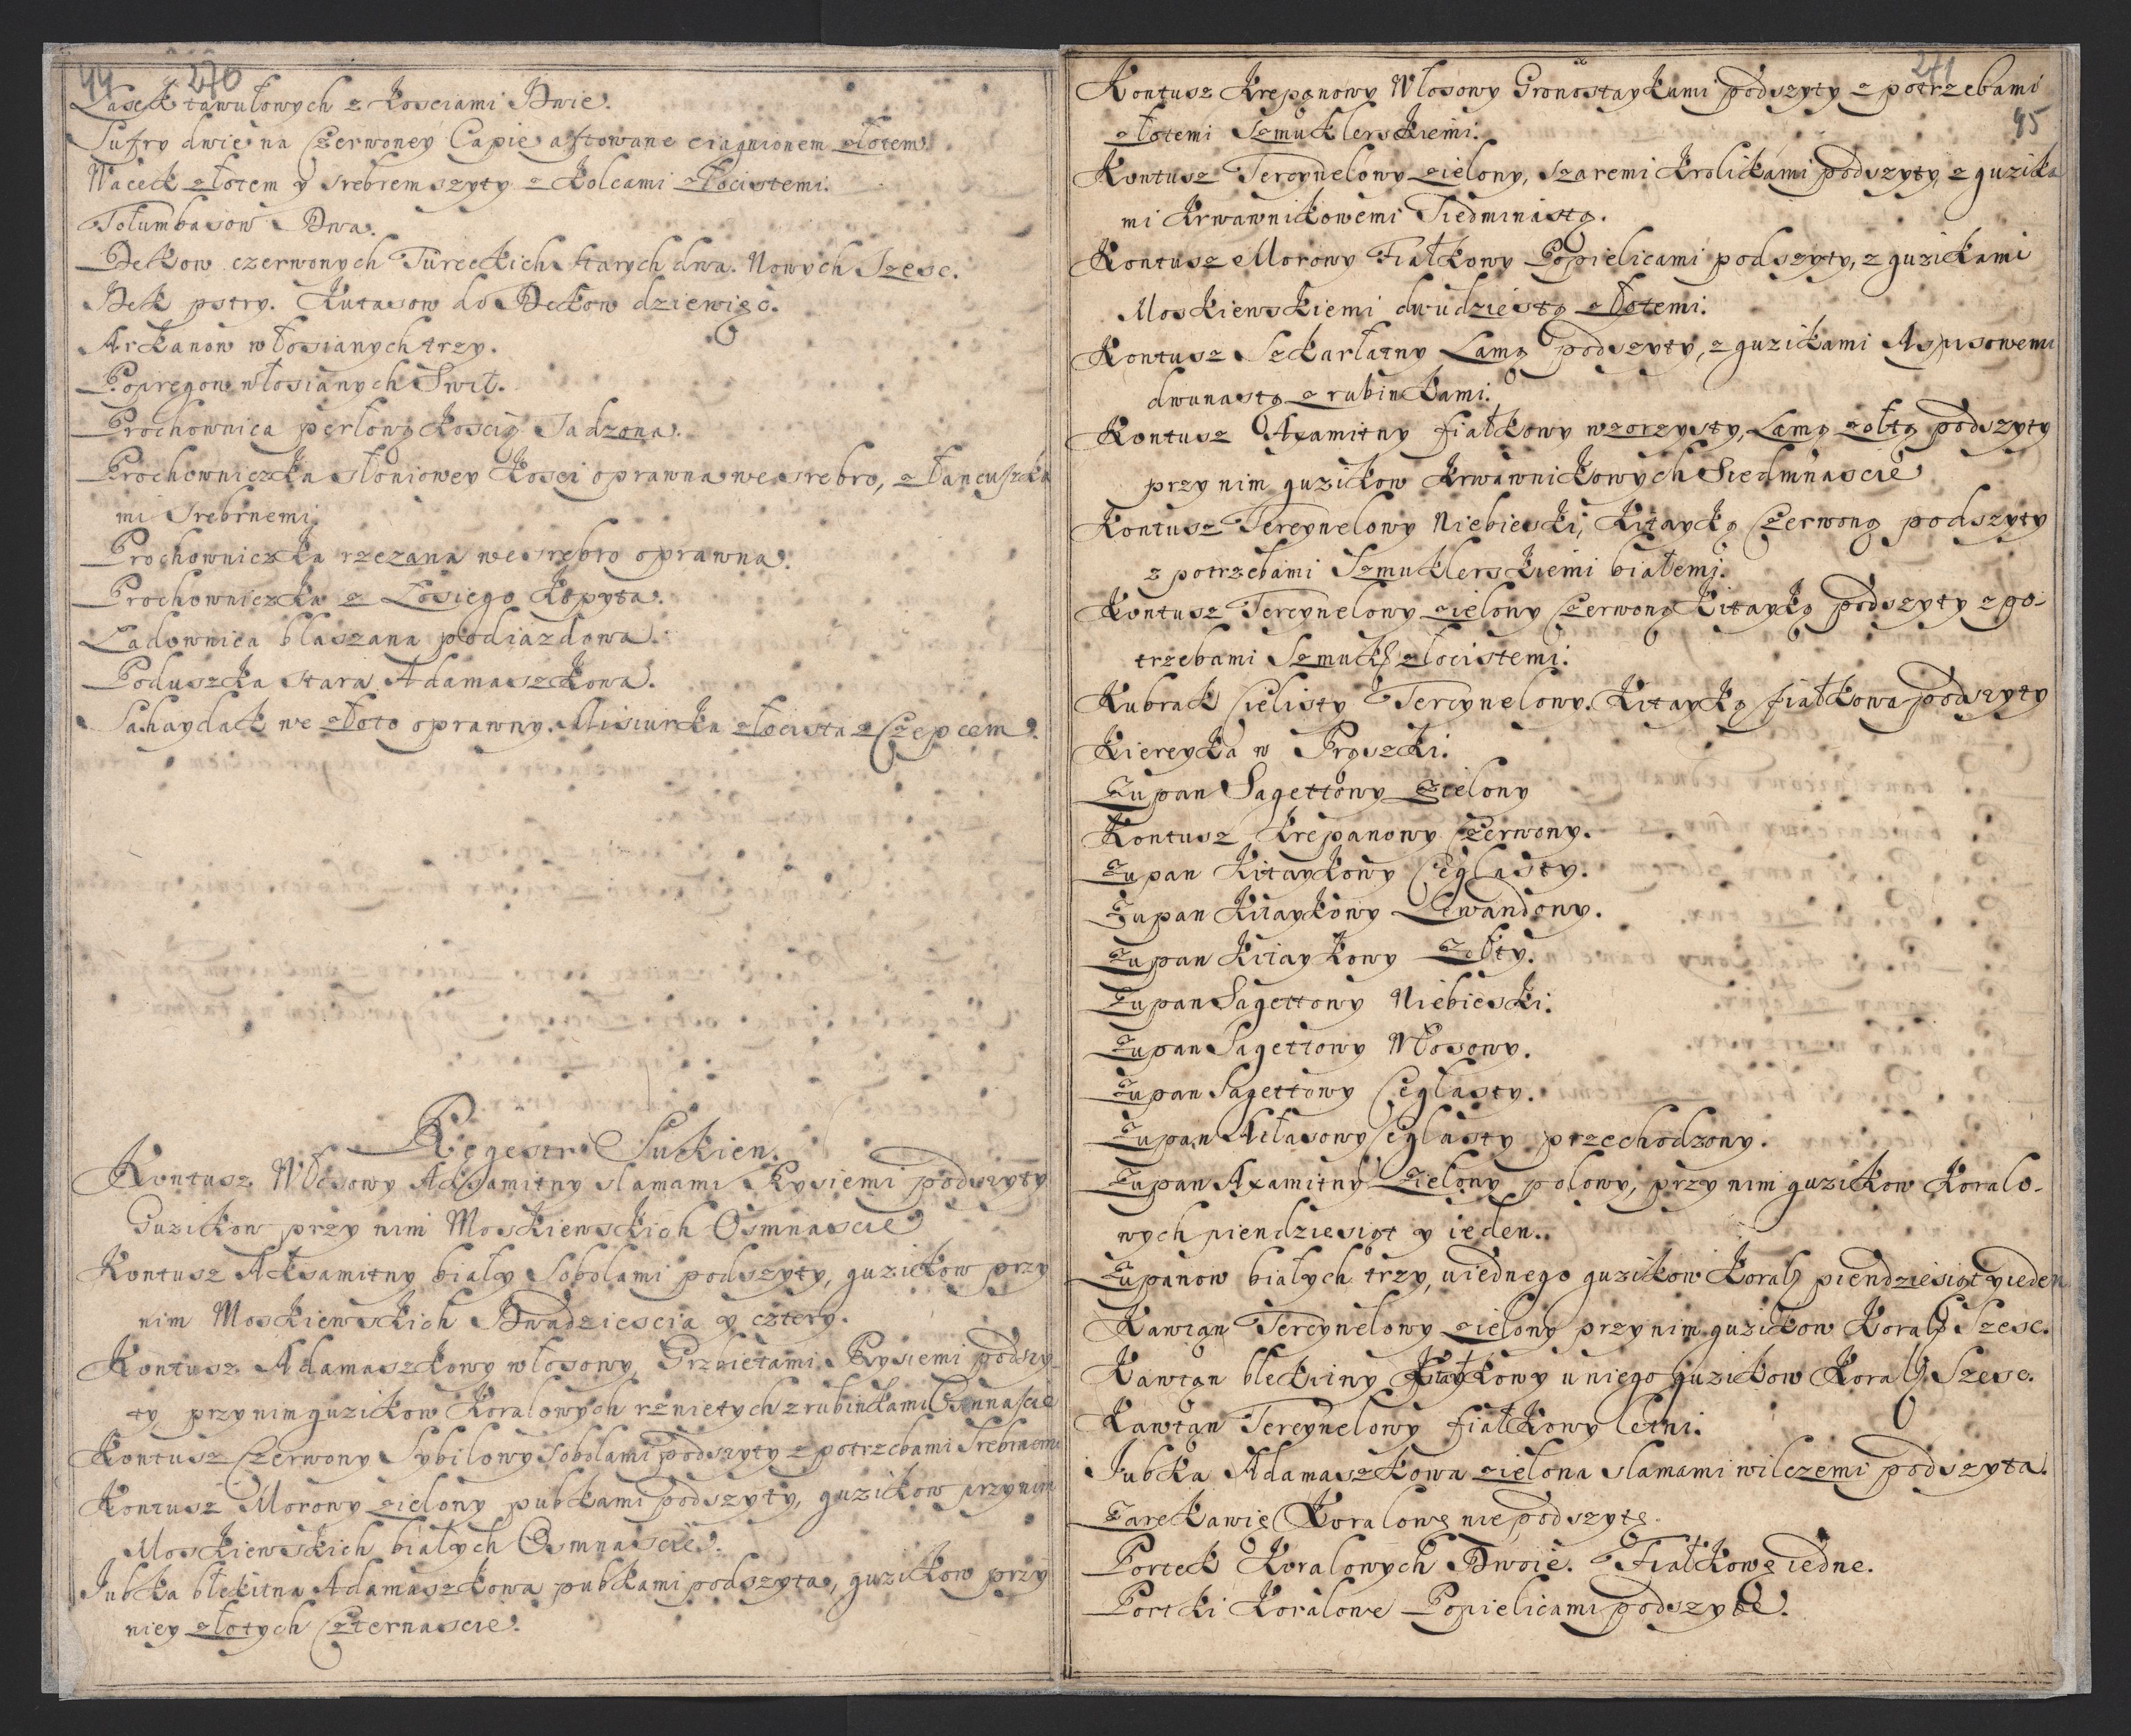 44 270
Lasek tawułowych z kosciami Dwie.
Sufry dwie na Czerwoney Capie aftowane ciągnionem złotem.
Wacek złotem y srebrem szyty z kolcami złocistemi.
Tołumbasow Dwa.
Dekow czerwonych Tureckich starych dwa. Nowych Szesc.
Dek pstry. Kutasow do Dekow dziewięc.
Arkanow włosianych trzy.
Popręgow włosianych Swit.
Prochownica perłową koscią Sadzona.
Prochowniczka słoniowey kosci oprawna we srebro, z łancuszka
mi srebrnemi.
Prochowniczka rzezana we srebro oprawna.
Prochowniczka z Łosiego Kopyta.
Ładownica blaszana podiazdowa.
Poduszka stara Adamaszkowa.
Sahaydak we złoto oprawny. Misiurka złocista z Czepcem.
Regestr Sukien.
Kontusz Włosowy Aksamitny slamami Rysiemi podszyty
Guzikow przy nim Moskiewskich Osmnascie
Kontusz Aksamitny biały Sobolami podszyty, guzikow przy
nim Moskiewskich Dwadziescia y cztery.
Kontusz Adamaszkowy włosowy, Grzbietami Rysiemi podszy-
ty przy nim guzikow Koralowych rznietych z rubinkami Osmnascie
Kontusz Czerwony Sybilowy Sobolami podszyty z potrzebami Srebrnemi
Kontusz Morowy zielony pubkami podszyty, guzikow przy nim
Moskiewskich białych Osmnascie.
Jubka błekitna Adamaszkowa pubkami podszyta, guzikow przy
niey złotych Czternascie.
271
45
Kontusz Krepanowy Włosowy Gronostaykami podszyty z potrzebami
złotemi Szmuklerskiemi.
Kontusz Tercynelowy zielony, szaremi krolikami podszyty, z guzika
mi krwawnikowemi Siedminastą.
Kontusz Morowy Fiałkowy Popielicami podszyty, z guzikami
Moskiewskiemi dwudziestą złotemi.
Kontusz Szkarłatny Lamą podszyty, z guzikami Aspisowemi
dwunastą z rubinkami.
Kontusz Axamitny fiałkowy wzorzysty, Lamą zołtą podszyty
przy nim guzikow krwawnikowych Siedmnascie
Kontusz Tercynelowy Niebieski, Kitayką Czerwoną podszyty
z potrzebami Szmuklerskiemi białemi.
Kontusz Tercynelowy zielony Czerwoną Kitayką podszyty z po-
trzebami Szmukl złocistemi.
Kubrak Cielisty Tercynelowy. Kitayką fiałkową podszyty
Kiereyka w Prąszki.
Zupan Sagettowy Zielony
Kontusz Krepanowy Czerwony.
Zupan Kitaykowy Ceglasty.
Zupan Kitaykowy Lewandowy.
Zupan Kitaykowy Zołty.
Zupan Sagettowy Niebieski.
Zupan Sagettowy Włosowy.
Zupan Sagettowy Ceglasty.
Zupan Atłasowy Ceglasty przechodzony.
Zupan Axamitny Zielony polowy, przy nim guzikow Koralo-
wych piendziesiąt y ieden.
Zupanow białych trzy, u iednego guzikow Koral. piendziesiąt y ieden
Kawtan Tercynelowy zielony przy nim guzikow Koral. Szesc.
Kawtan błekitny Kitaykowy u niego guzikow Koral. Szesc.
Kawtan Tercynelowy fiałkowy letni.
Jubka Adamaszkowa zielona slamami wilczemi podszyta.
Zarekawie Koralowe nie podszyte.
Portek Koralowych Dwoie. Fiałkowe iedne.
Portki Koralowe Popielicami podszyte.